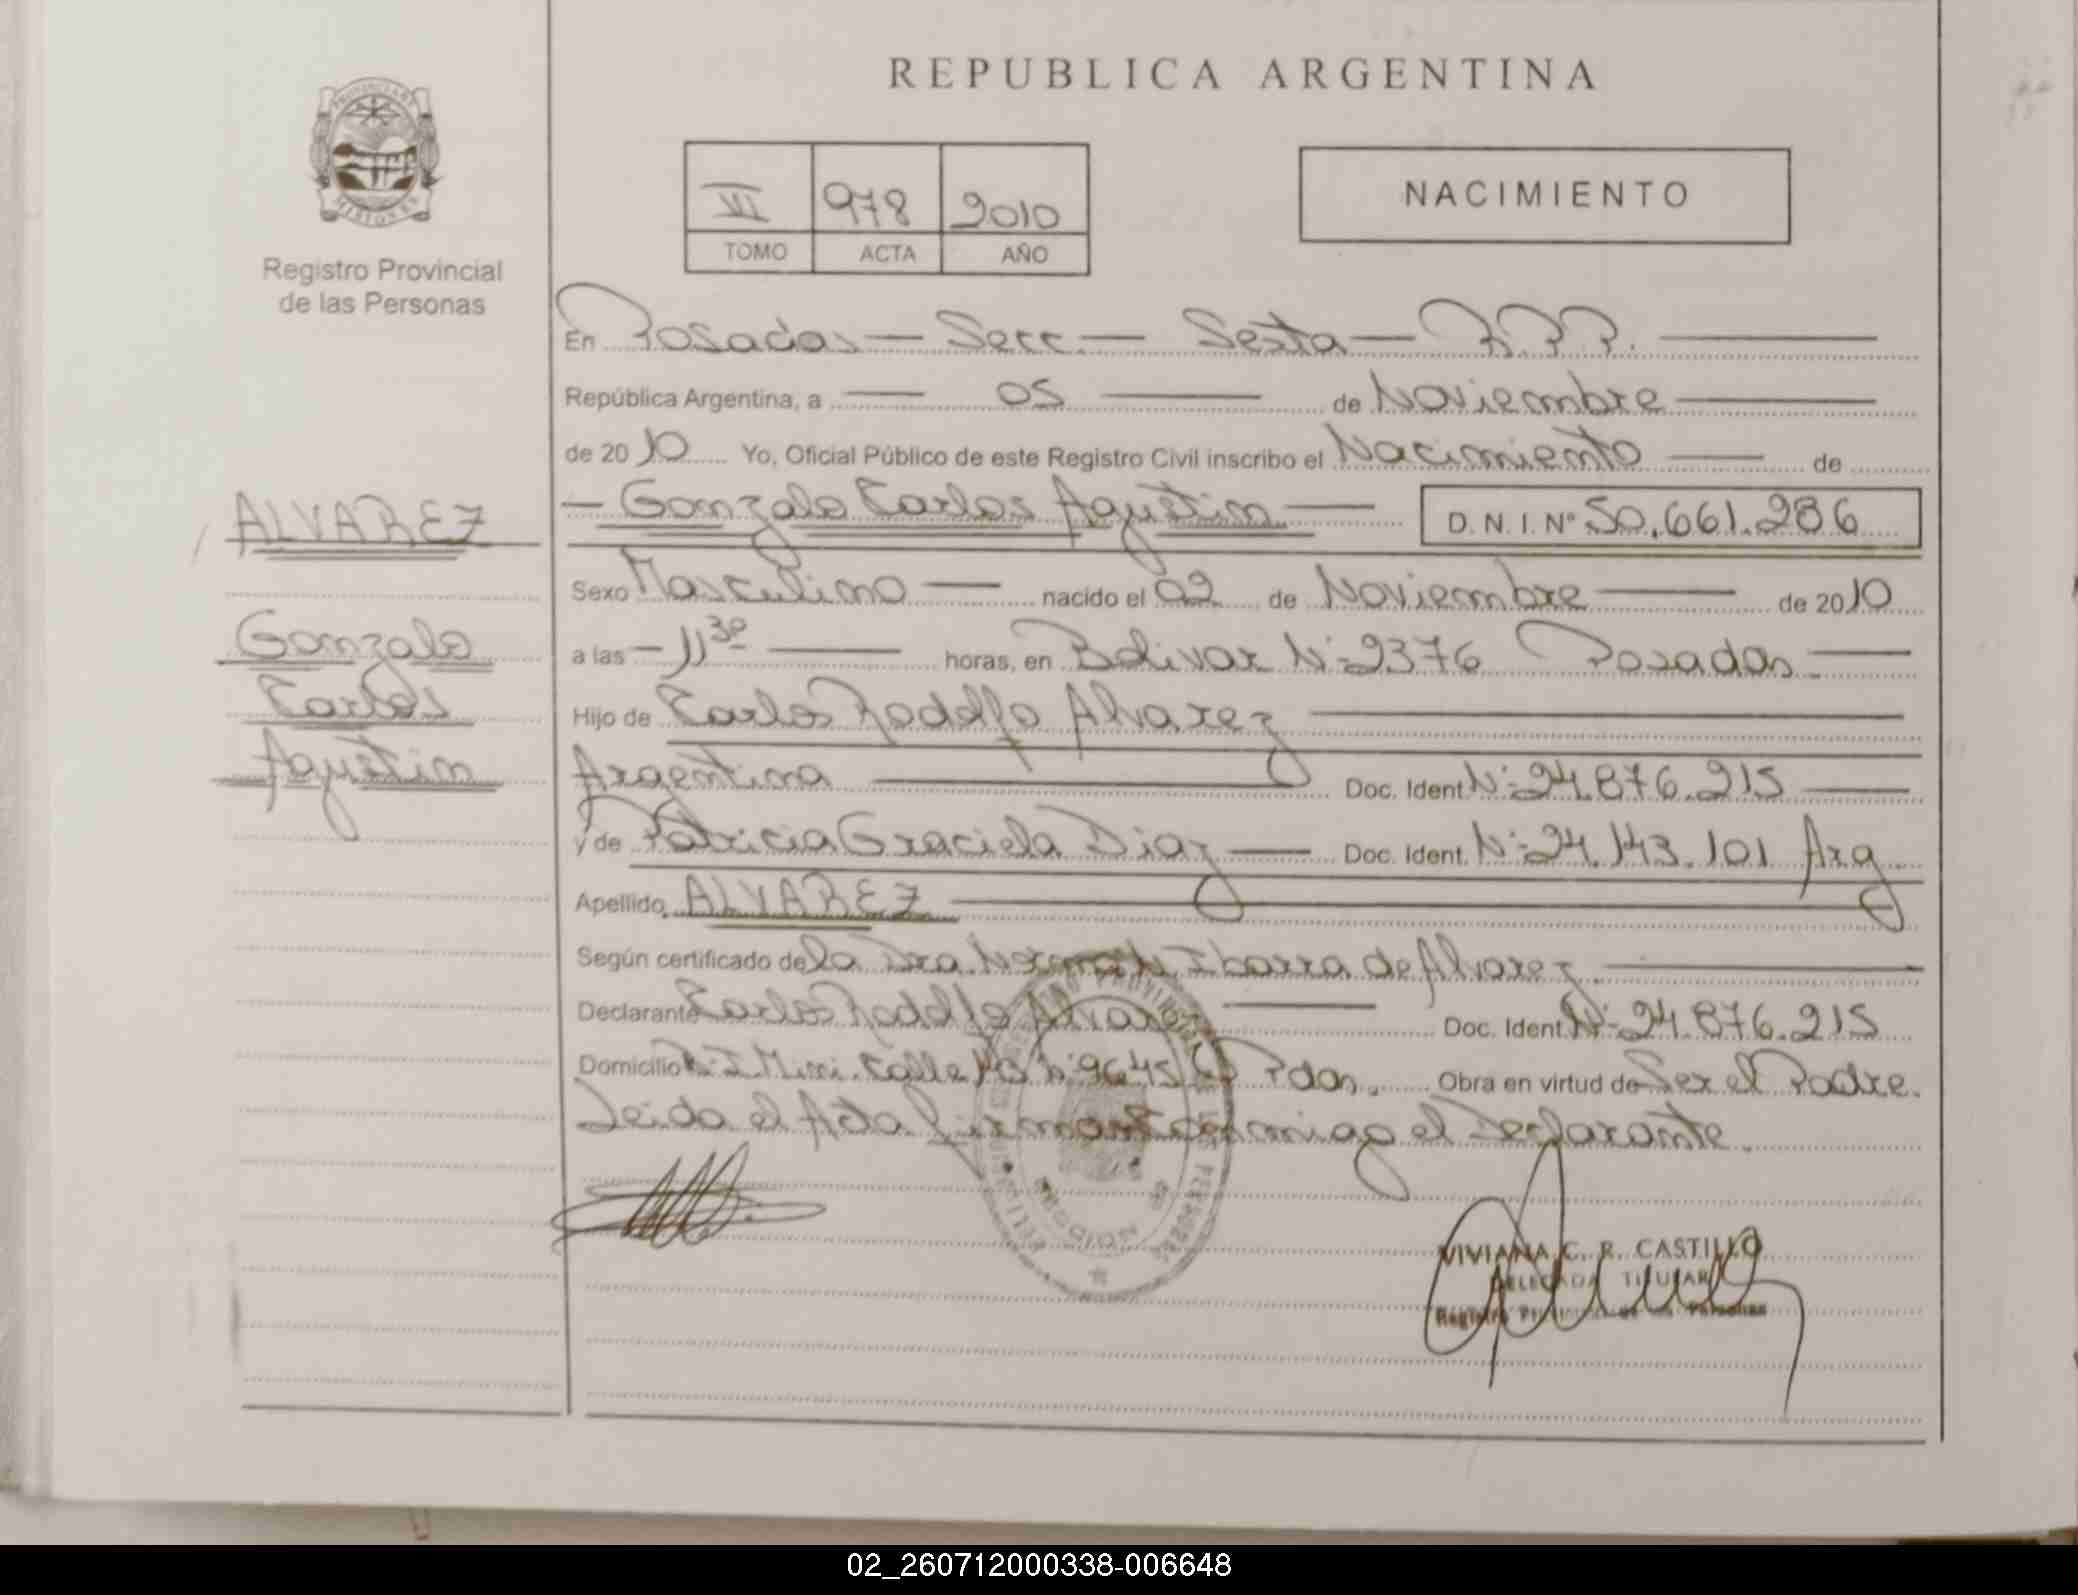 REPUBLICA ARGENTINA
PROVINCIA DE
MISIONES
Registro Provincial
de las Personas
VI 978 2010
TOMO ACTA AÑO
NACIMIENTO
En Posadas — Secc. — Sexta — R.P.P.
República Argentina, a — 05 — de Noviembre
de 2010 Yo, Oficial Público de este Registro Civil inscribo el Nacimiento — de
ALVAREZ
Gonzalo
Carlos
Agustin
— Gonzalo Carlos Agustin — D.N.I.Nº 50.661.286
Sexo Masculino — nacido el 02 de Noviembre — de 2010
a las — 11 30 — horas, en Bolivar Nº 2376 Posadas. —
Hijo de Carlos Rodolfo Alvarez —
Argentina — Doc. Ident. Nº 24.876.215 —
y de Patricia Graciela Diaz — Doc. Ident. Nº 24.143.101 Arg
Apellido ALVAREZ —
Según certificado de la Dra. Norma Ibarra de Alvarez. —
Declarante Carlos Rodolfo Alvarez — Doc. Ident. Nº 24.876.215
Domicilio Calle Nº 9645 Pdas. Obra en virtud de Ser el Padre.
Leida el Acta firmante conmigo el Declarante.
VIVIANA C. R. CASTILLO
DELEGADA TITULAR
Registro Provincial de las Personas
02_260712000338-006648